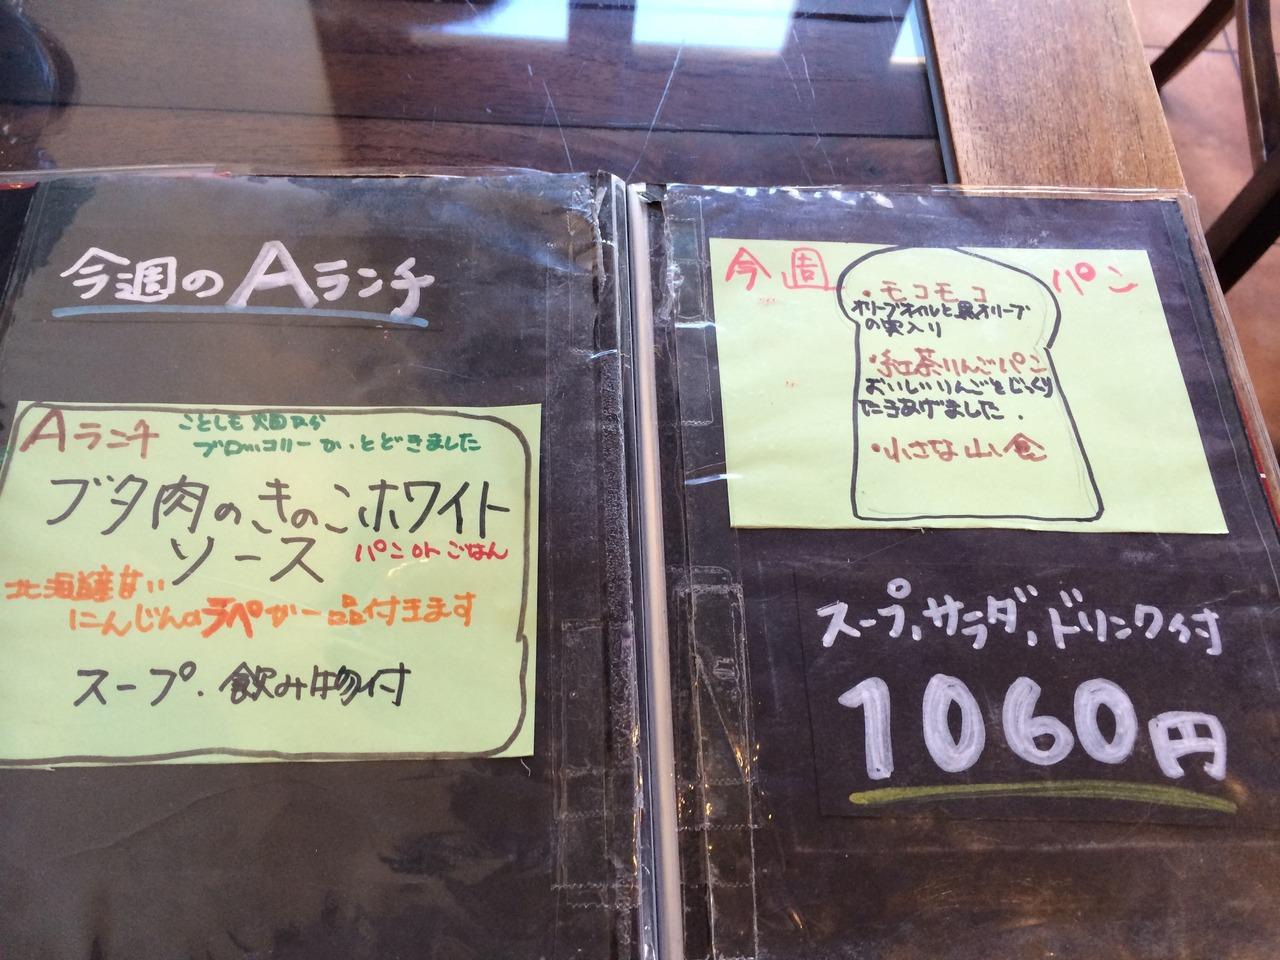 今週のAランチ
Aランチ
ことしも畑から
ブロッコリーが、とどきました
ブタ肉のきのこホワイト
ソース
パンorごはん
北海道産甘い
にんじんのラペが一品付きます
スープ、飲み物付
今週 パン
・モコモコ
オリーブオイルと黒オリーブ
の実入り
・紅茶りんごパン
おいしいりんごをじっくり
たきあげました.
・小さな山食
スープ、サラダ、ドリンク付
1060円